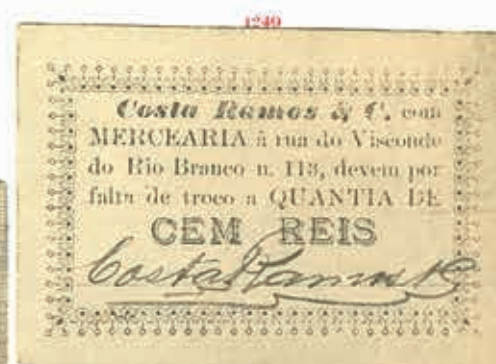 1249
Costa Ramos & C. com
MERCEARIA á rua do Visconde
do Rio Branco n. 113, devem por
falta de troco a QUANTIA DE
CEM REIS
Costa Ramos & C